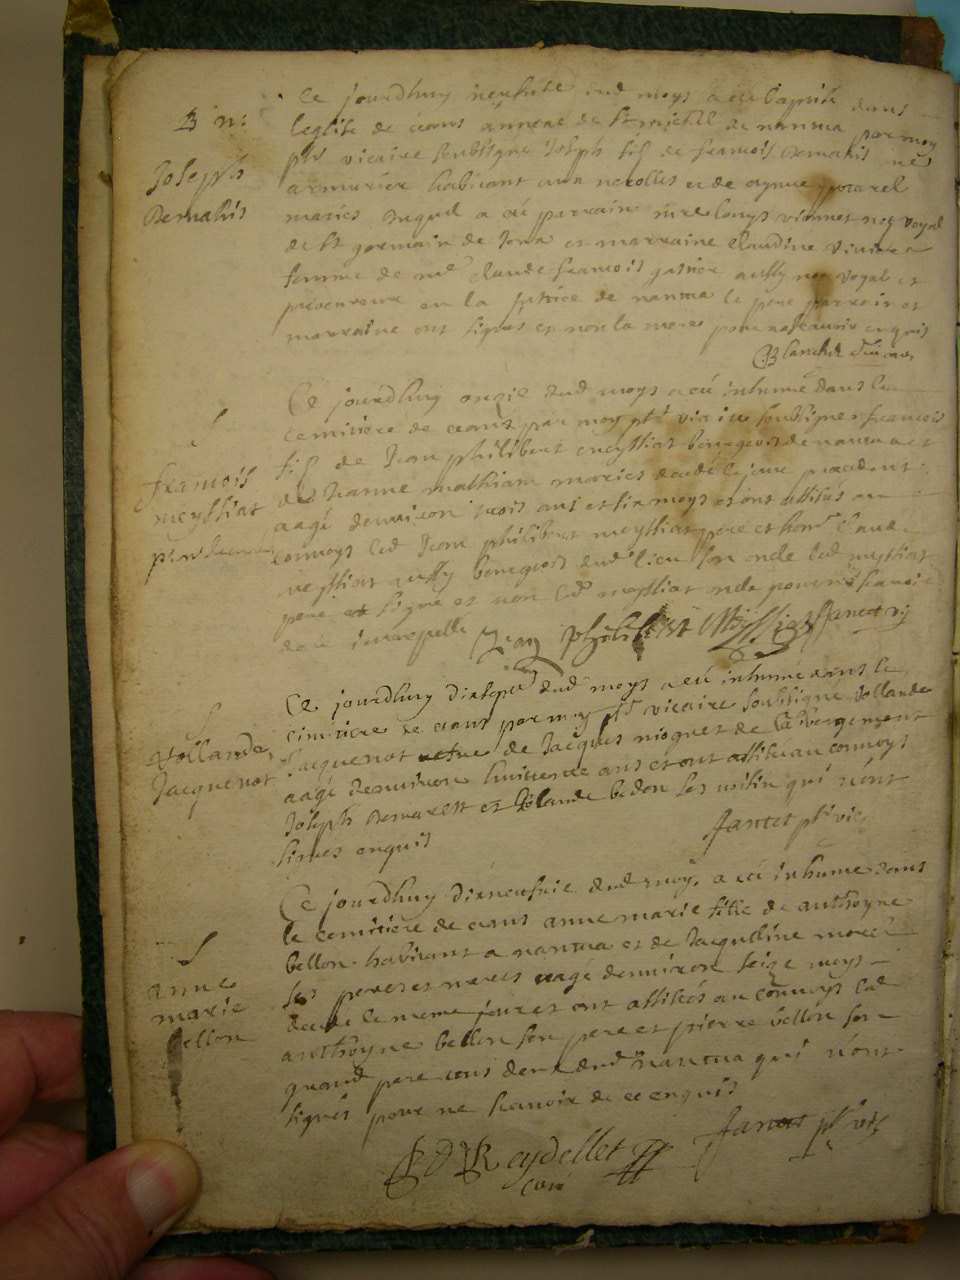 B n:
Joseph
Demahis
Ce jourdhuy neufvie dud moys a été baptisé dans
leglise de ceans annexe de St michel de nantua par moy
ptr vicaire soubsigné Joseph fils de francois Demahis me
armurier habitant aux
mariés duquel a été parrain sire louys viennet no royal
de St germain de Joux et marraine Claudine
femme de me claude francois aussy no royal et
procureur en la justice de nantua le pere parrain et
marraine ont signés et non la mere pour ne scavoir enquis
francois
meyssiat
Ce jourdhuy onzie dud moys a eté inhumé dans le
cemitiere de ceans par moy ptr vicaire soubsigné francois
fils de Jean philibert meyssiat bourgeois de nantua et
de Jeanne mathian mariés decedé le jour precedent
aagé denviron trois ans et six moys et ont assités au
convoys led Jean philibert meyssiat pere et honr
meyssiat aussy bourgeois dud lieu son oncle led meyssiat
pere a signé et non led meyssiat oncle pour ne scavoir
de ce interpellé Jean Philibert Meyssiat Jantet vic
Yollande
Jacquenot
Ce jourdhuy dixseptie dud moys a eté inhumé dans le
cimitiere de ceans par moy ptr vicaire soubsigné Yollande
Jacquenot vefve de Jacques nioguet de labergement
aagé denviron huitante ans et ont assité au convoys
Joseph Demarest et Yolande bedon ses voisin qui n'ont
signes enquis
Jantet ptr vic
anne
marie
bellon
Ce jourdhuy dixneufvie dud moys a eté inhumé dans
le cemitiere de ceans anne marie fille de anthoyne
bellon habitant a nantua et de Jacqueline morel
ses peres et meres aagé denviron seize moys
decedé le meme jour et ont assités au convoys led
anthoyne bellon son pere et pierre bellon son
grand pere tous deux dud nantua qui n'ont
signés pour ne scavoir de ce enquis
Reydellet
curé
Jantet ptr vic